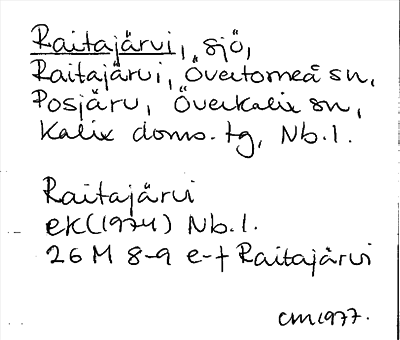 Raitajärvi, sjö,
Raitajärvi, Övertorneå sn,
Posjärv, Överkalix sn,
Kalix doms. tg, Nb.l.
Raitajärvi
ek(1974) Nb.l.
26 M 8-9 e-f Raitajärvi
CM1977.